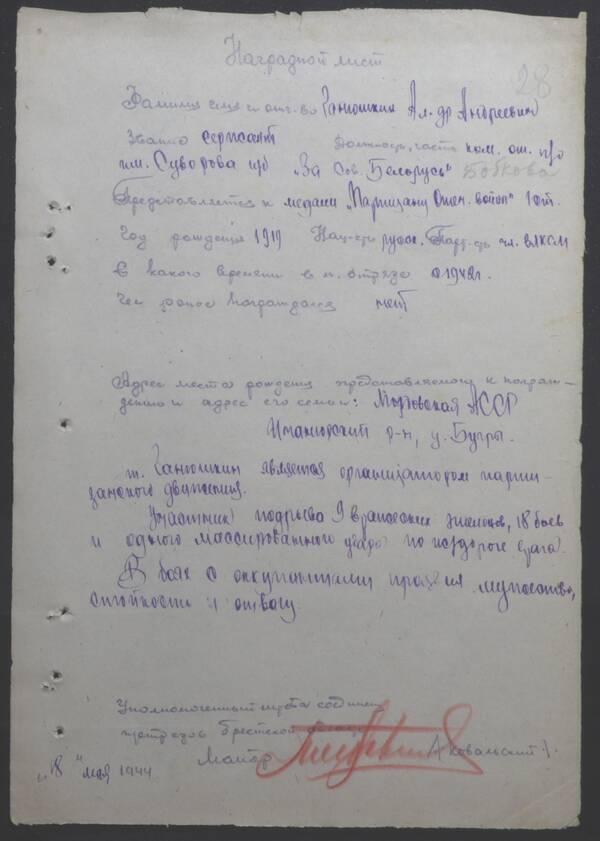 Наградной лист
28
Фамилия имя и отч-во Ганюшкин Ал-др Андреевич
Звание сержант Должность, часть ком. от. п/о
им. Суворова п/б "За Сов. Белорусь" Бобкова
Представляется к медали "Партизану Отеч. войны" I ст.
Год рождения 1919 Нац-сть русск. Парт-сть чл. ВЛКСМ
С какого времени в п. отряде с 1942 г.
Чем ранее награждался нет
Адрес места рождения представляемого к награж-
дению и адрес его семьи: Мордовская АССР
р-н, у. Бугры.
т. Ганюшкин является организатором парти-
занского движения.
Участник подрыва 9 вражеских эшелонов, 18 боев
и одного массированного удара по ж/дороге врага.
В боях с оккупантами проявил мужество,
стойкость и отвагу
Уполномоченный штаба соединен.
Брестской
Майор А Ковальский
"18" мая 1944